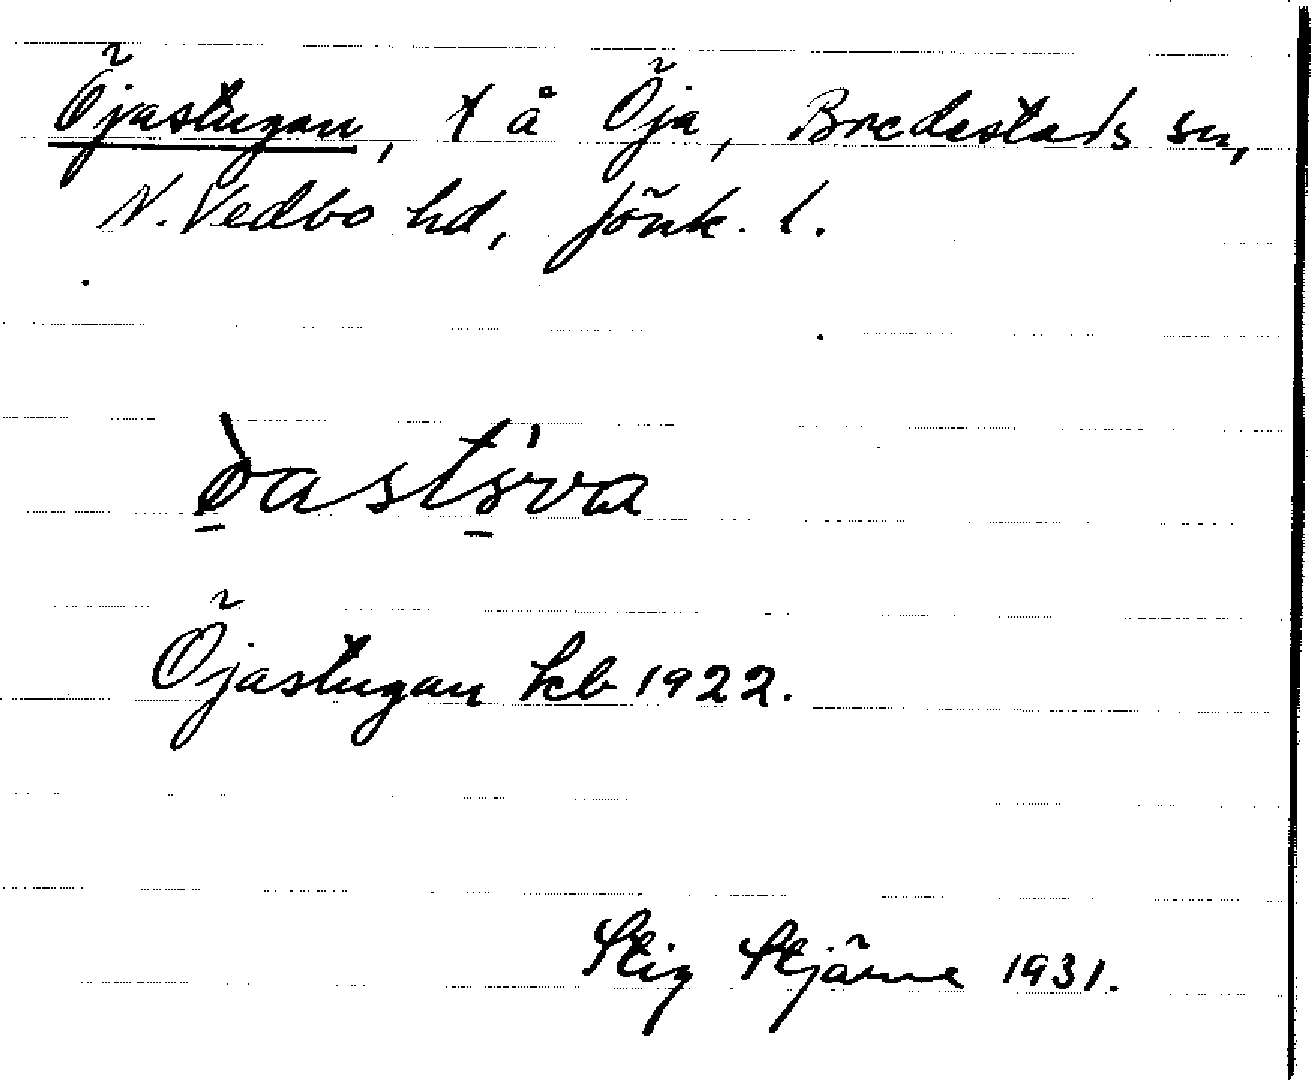 Öjastugan, t å Öja, Bredestads sn,
N. Vedbo hd, Jönk. l.
Öjastugan kb 1922.
Stig Stjärne 1931.